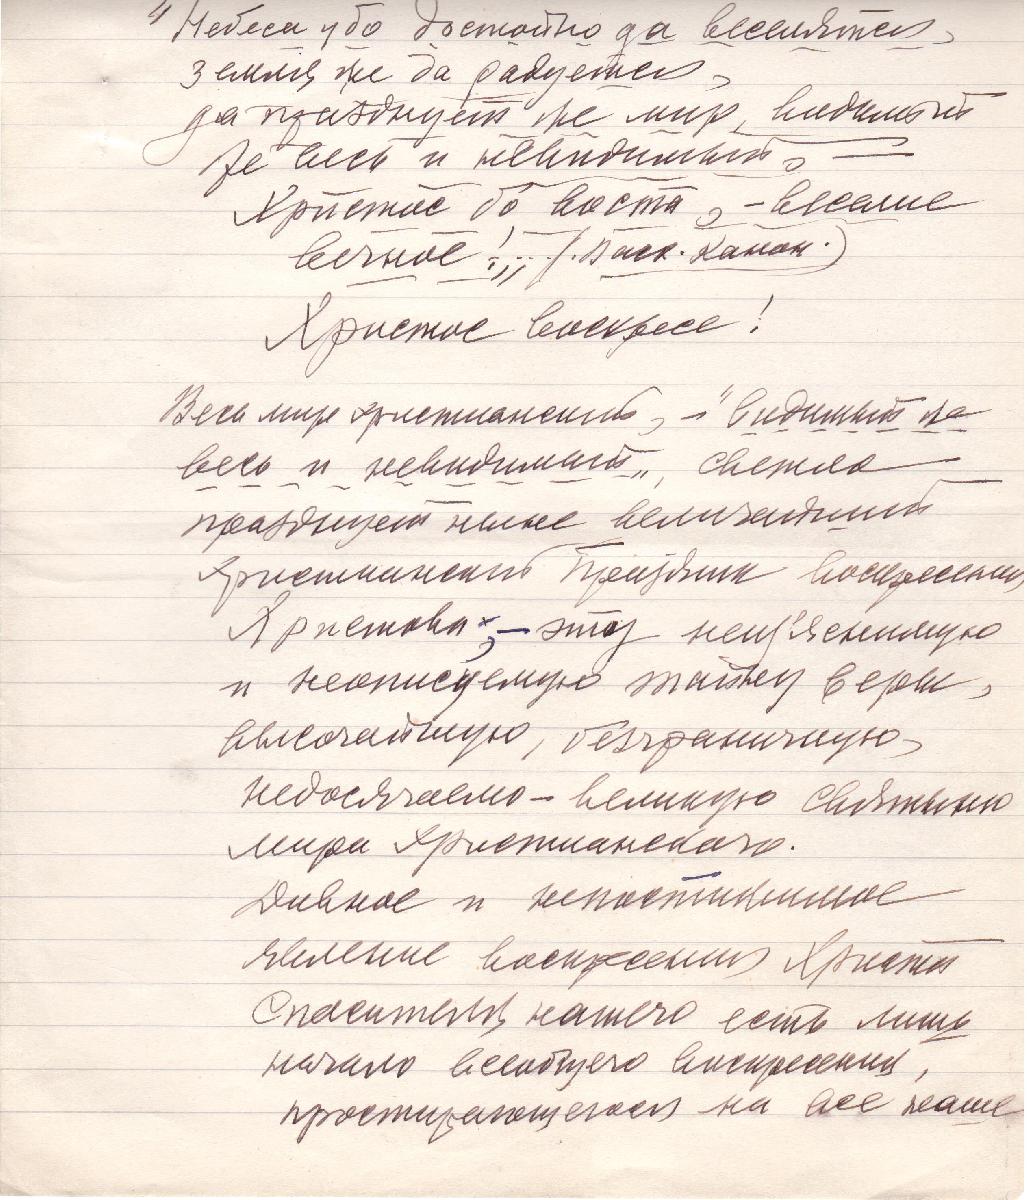 "Небеса убо достойно да веселятся,
земля же да радуется,
да празднует же мир, видимый
же весь и невидимый, —
Христос бо воста, - веселие
вечное!..." (Пасх. Канон.)
Христос воскресе!
Весь мир христианский, - "видимый же
весь и невидимый", светло
празднует ныне величайший
христианский Праздник воскресения
Христова, - эту неизъяснимую
и неописуемую тайну веры,
высочайшую, безграничную,
недосягаемо-великую святыню
мира христианского.
Дивное и непостижимое
явление воскресения Христа
Спасителя нашего есть лишь
начало всеобщего воскресения,
простирающегося на все наше